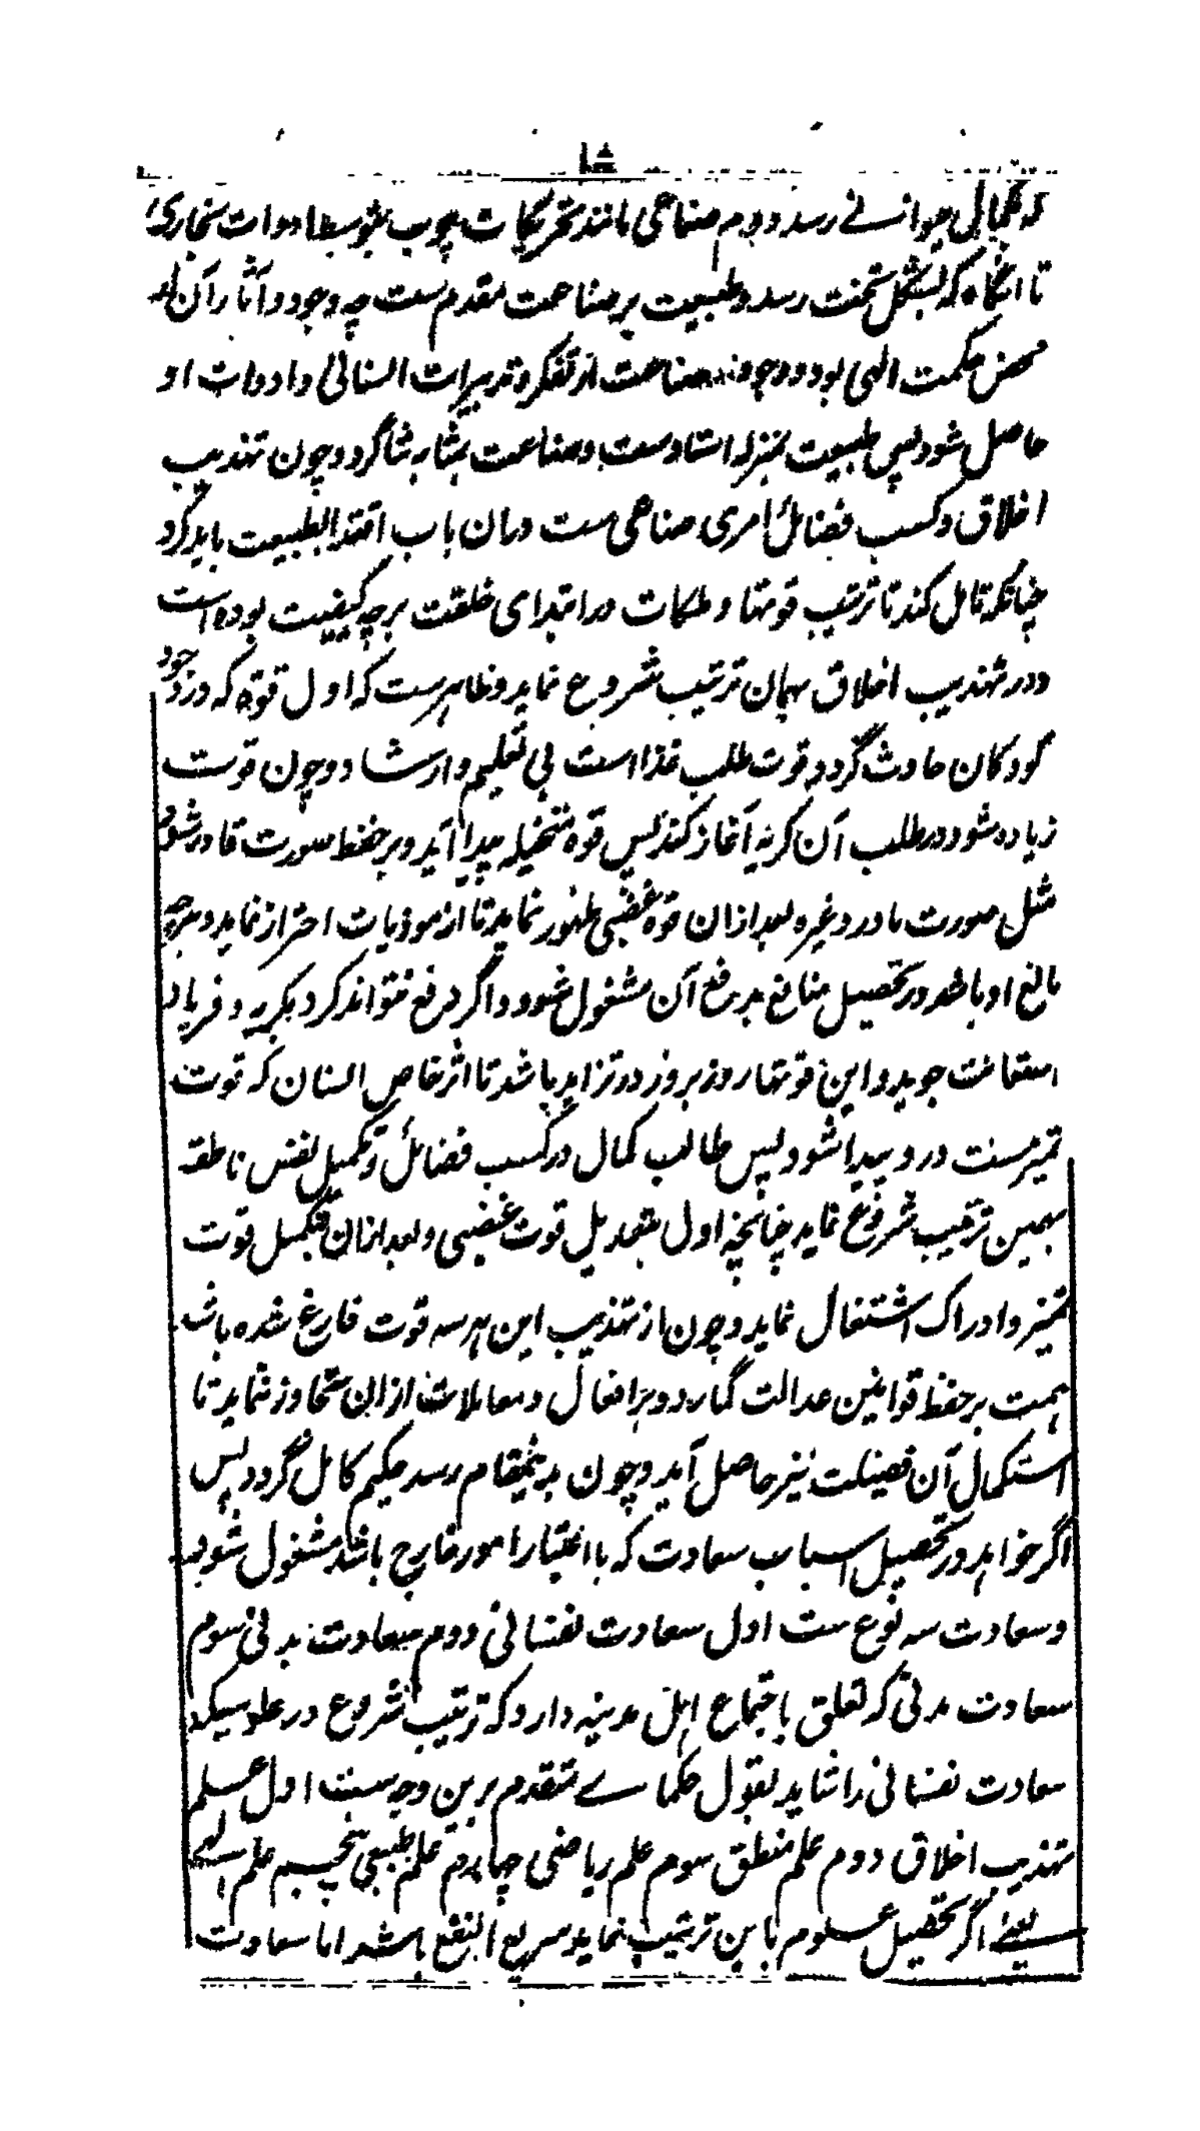 ۱۵
که بکمال حیوانے رسد دوم صناعی مانند تحریکات چوب بتوسط ادوات نجاری
تا انگاه که بشکل تخت رسد و طبیعت بر صناعت مقدم ست چه وجود و آثار آن از
محض حکمت الهی بود و وجود صناعت از تفکر و تدبیرات انسانی و ادوات او
حاصل شود پس طبیعت بمنزله استاد ست و صناعت بمثابه شاگرد و چون تهذیب
اخلاق و کسب فضائل امری صناعی ست دران باب اقتدا بطبیعت باید کرد
چنانکه تامل کند تا ترتیب قوتها و ملکات در ابتدای خلقت برچه کیفیت بوده است
و در تهذیب اخلاق بهمان ترتیب شروع نماید و ظاهرست که اول قوه که در وجود
کودکان حادث گردد قوت طلب غذا است بی تعلیم و ارشاد و چون قوت
زیاده شود در طلب آن گریه آغاز کند پس قوه متخیله پیدا آید و بر حفظ صورت قادر شود
مثل صورت مادر و غیره بعد ازان قوه غضبی ظهور نماید تا از موذیات احتراز نماید و هرچه
مانع او باشد در تحصیل منافع بدفع آن مشغول شود و اگر دفع نتواند کرد بگریه و فریاد
استعانت جوید و این قوتها روز بروز در تزاید باشد تا اثر خاص انسان که قوت
تمیزست در و پیدا شود پس طالب کمال در کسب فضائل و تکمیل نفس ناطقه
بهمین ترتیب شروع نماید چنانچه اول بتعدیل قوت غضبی و بعد ازان بتکمیل قوت
تمیز و ادراک اشتغال نماید و چون از تهذیب این هر سه قوت فارغ شده باشد
همت بر حفظ قوانین عدالت گمارد و در افعال و معاملات ازان تجاوز ننماید تا
استکمال آن فضیلت نیز حاصل آید و چون بدینمقام رسد حکیم کامل گردد پس
اگر خواهد در تحصیل اسباب سعادت که با اعتبار امور خارج باشد مشغول شود
و سعادت سه نوع ست اول سعادت نفسانی دوم سعادت بدنی سوم
سعادت مدنی که تعلق باجتماع اهل مدینه دارد که ترتیب شروع در علومیکه
سعادت نفسانی را شاید بقول حکماے متقدم برین وجه ست اول علم
تهذیب اخلاق دوم علم منطق سوم علم ریاضی چهارم علم طبیعی پنجم علم الهے
یعنے اگر تحصیل علوم باین ترتیب نماید سریع النفع باشد اما سعادت